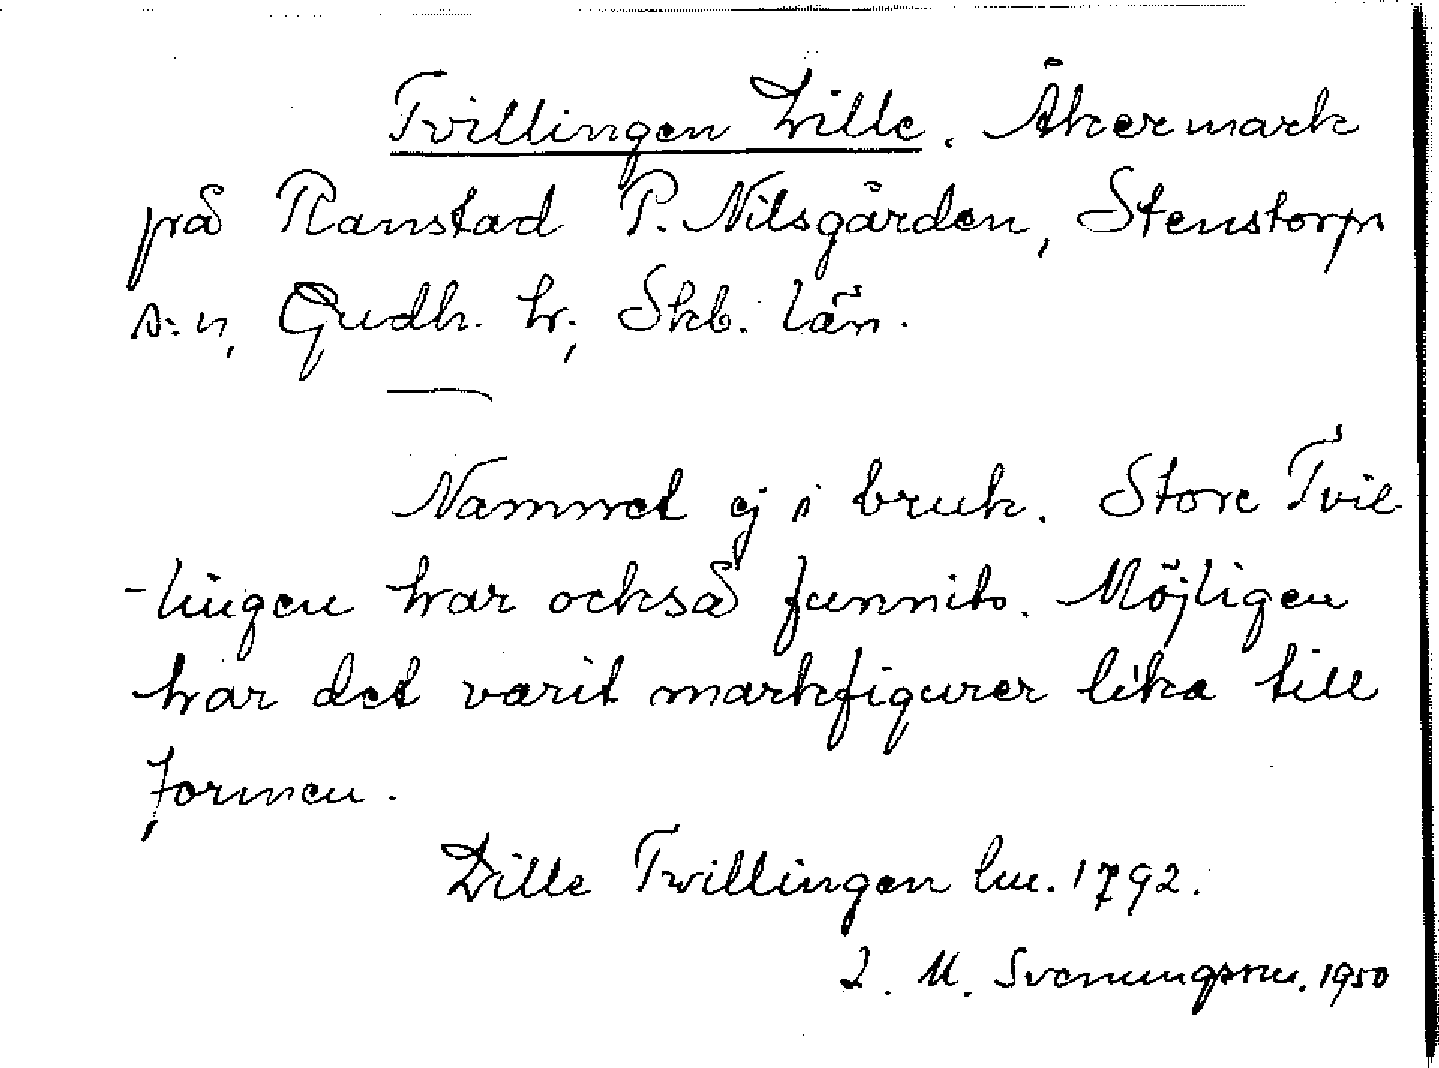 Tvillingen Lille. Åkermark
på Ranstad P. Nilsgården, Stenstorps
s:n, Gudh. h., Skb. län.
Namnet ej i bruk. Store Tvil-
-lingen har också funnits. Möjligen
har det varit markfigurer lika till
formen.
Lille Tvillingen lm. 1792.
I. M. Svenungsson. 1950